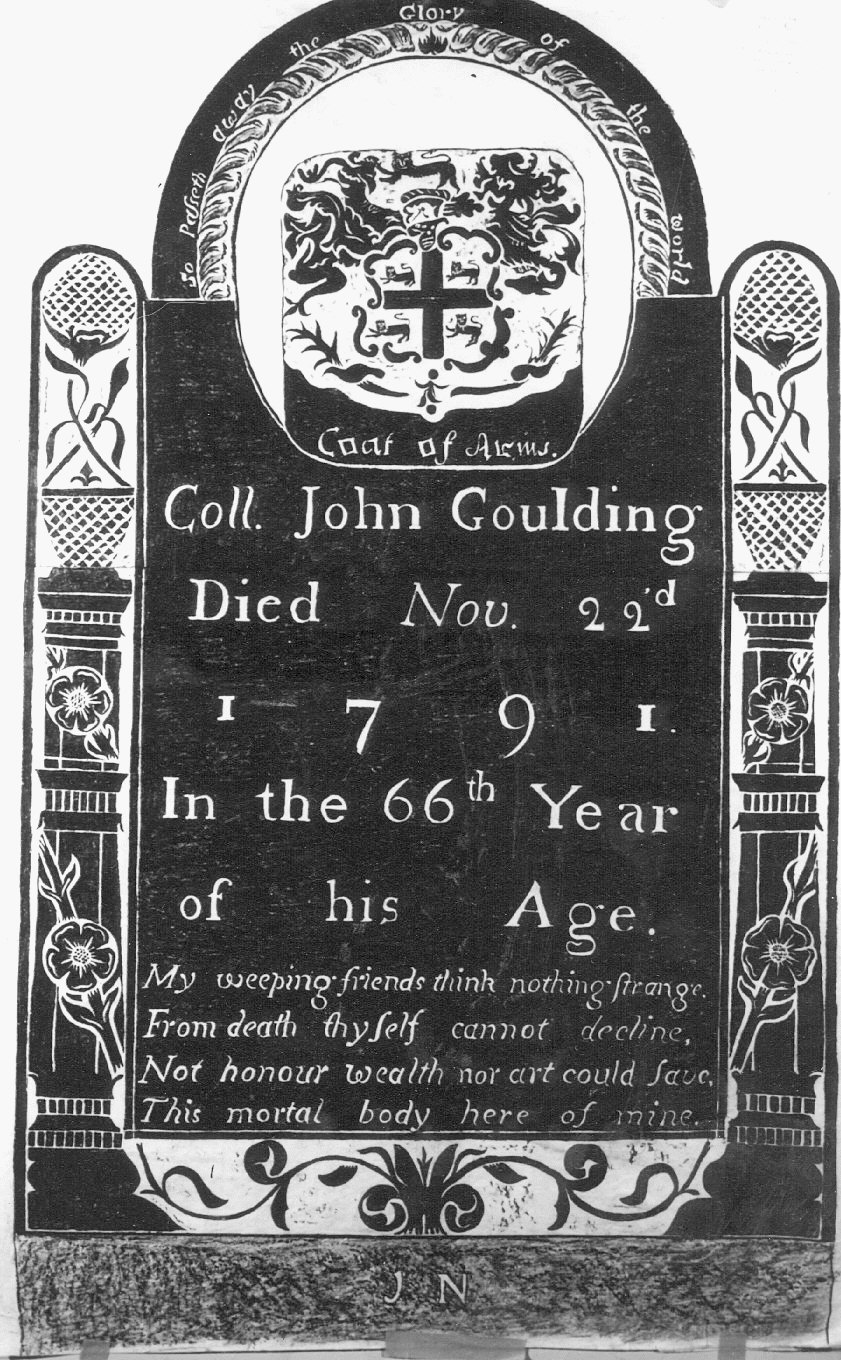 So Paſseth away the Glory of the World
Coat of Arms.
Coll. John Goulding
Died Nov. 22'd
1 7 9 1.
In the 66th Year
of his Age.
My weeping friends think nothing ſtrange.
From death thyſelf cannot decline,
Not honour wealth nor art could ſave,
This mortal body here of mine.
J N